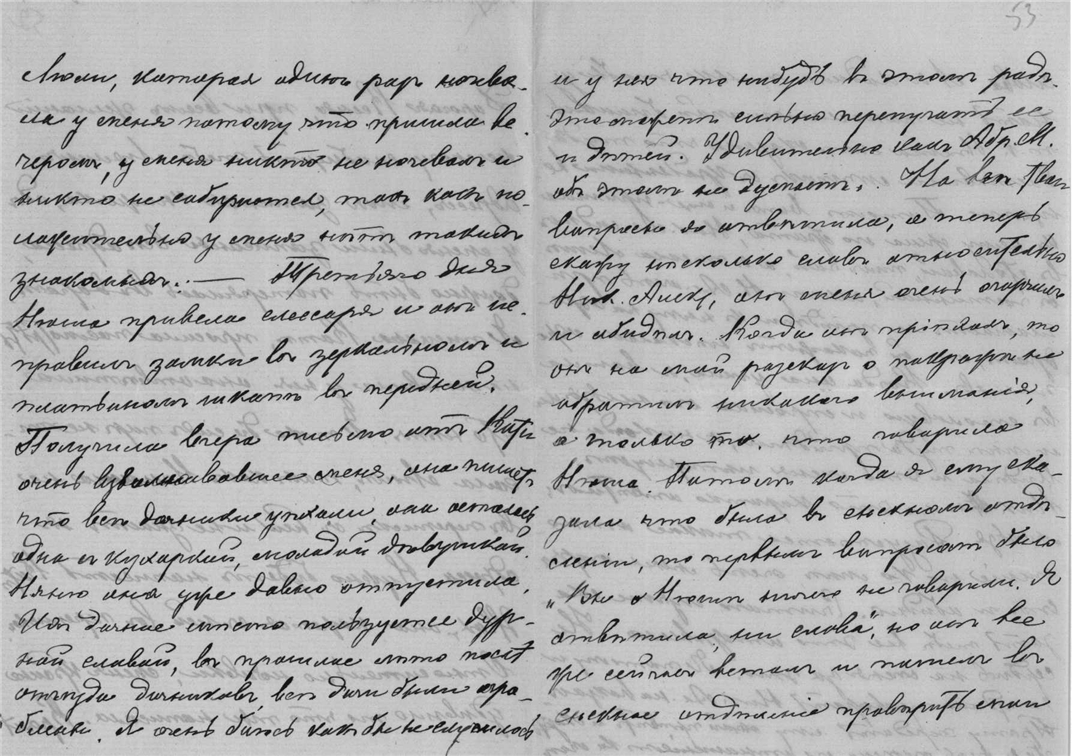 53
Люли, которая один разъ ночева-
ла у меня потому что пришла ве-
черомъ, у меня никто не ночевалъ и
никто не собирается, такъ какъ по-
ложительно у меня нѣтъ такихъ
знакомыхъ. — Третьяго дня
Нюша привела слесаря и онъ ис-
правилъ замки въ зеркальномъ и
платяномъ шкапѣ въ передней.
Получила вчера письмо отъ Кати
очень взволновавшее меня, она пишетъ
что всѣ дачники уѣхали, она осталась
одна съ кухаркой, молодой дѣвушкой.
Няню она уже давно отпустила.
Ихъ дачное мѣсто пользуется дур-
ной славой, въ прошлое лѣто послѣ
отъѣзда дачниковъ, всѣ дачи были огра-
блены. Я очень боюсь какъ бы не случилось
и у нея что нибудь въ этомъ родѣ
это можетъ сильно перепугать ее
и дѣтей. Удивительно какъ Абр. М.
объ этомъ не думаетъ. На всѣ твои
вопросы я отвѣтила, а теперь
скажу нѣсколько словъ относительно
Ник. Алек., онъ меня очень огорчилъ
и обидѣлъ. Когда онъ пріѣхалъ, то
онъ на мой разсказъ о покражѣ не
обратилъ никакого вниманія,
а только то что говорила
Нюша. Потомъ когда я ему ска-
зала что была въ сыскномъ отдѣ-
леніи, то первымъ вопросомъ было
„Вы о Нюшѣ ничего не говорили. Я
отвѣтила, ни слова", но онъ все
же сейчасъ всталъ и пошелъ въ
сыскное отдѣленіе провѣрить мои